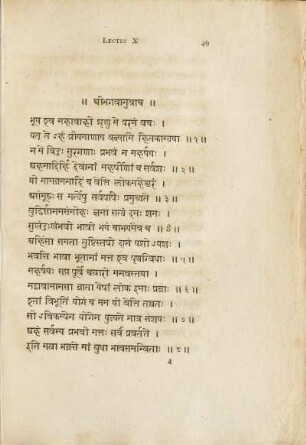 LECTIO X.
49
॥ श्रीभगवानुवाच ॥
भूय एव महाबाहो शृणु मे परमं वचः ।
यत् ते ऽहं प्रीयमाणाय वक्ष्यामि हितकाम्यया ॥ १ ॥
न मे विदुः सुरगणाः प्रभवं न महर्षयः ।
अहमादिर्हि देवानां महर्षीणां च सर्वशः ॥ २ ॥
यो मामजमनादिं च वेत्ति लोकमहेश्वरं ।
असंमूढः स मर्त्येषु सर्वपापैः प्रमुच्यते ॥ ३ ॥
बुद्धिर्ज्ञानमसंमोहः क्षमा सत्यं दमः शमः ।
सुखं दुःखं भवो भावो भयं चाभयमेव च ॥ ४ ॥
अहिंसा समता तुष्टिस्तपो दानं यशो ऽयशः ।
भवन्ति भावा भूतानां मत्त एव पृथग्विधाः ॥ ५ ॥
महर्षयः सप्त पूर्वे चत्वारो मनवस्तथा ।
मद्भावा मानसा जाता येषां लोक इमाः प्रजाः ॥ ६ ॥
एतां विभूतिं योगं च मम यो वेत्ति तत्त्वतः ।
सो ऽविकम्पेन योगेन युज्यते नात्र संशयः ॥ ७ ॥
अहं सर्वस्य प्रभवो मत्तः सर्वं प्रवर्तते ।
इति मत्वा भजन्ते मां बुधा भावसमन्विताः ॥ ८ ॥
4